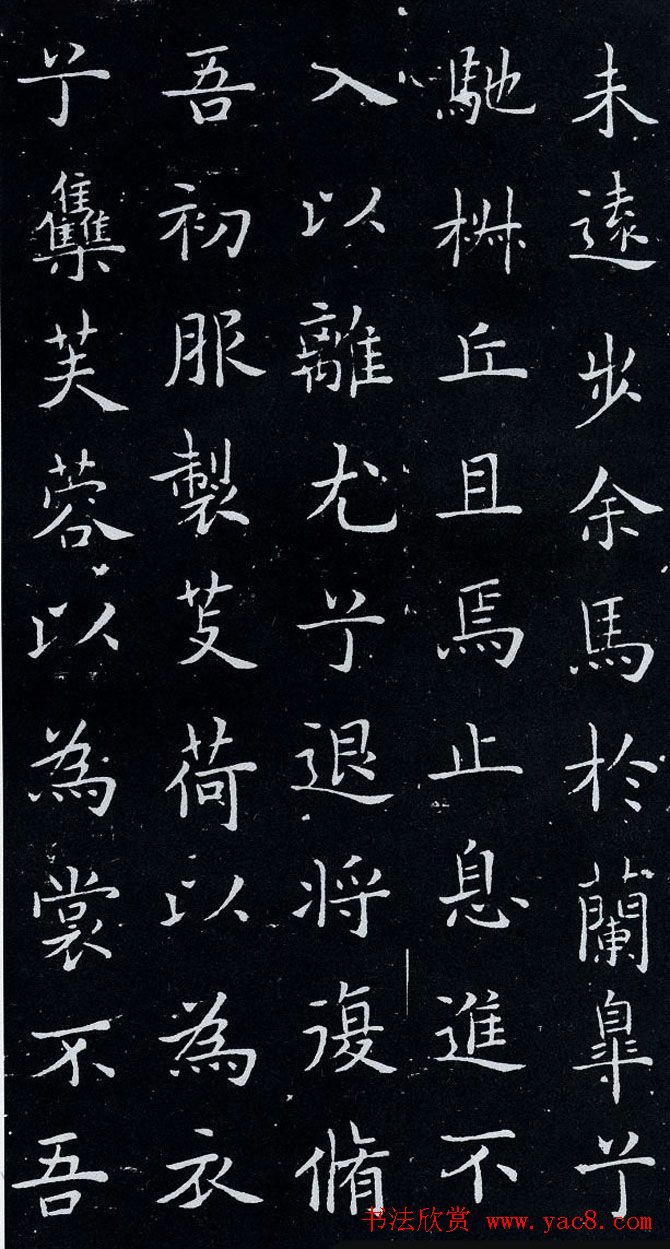 未遠步余馬於蘭皋兮
馳椒丘且焉止息進不
入以離尤兮退將復脩
吾初服製芰荷以為衣
兮雧芙蓉以為裳不吾
书法欣赏 www.yac8.com